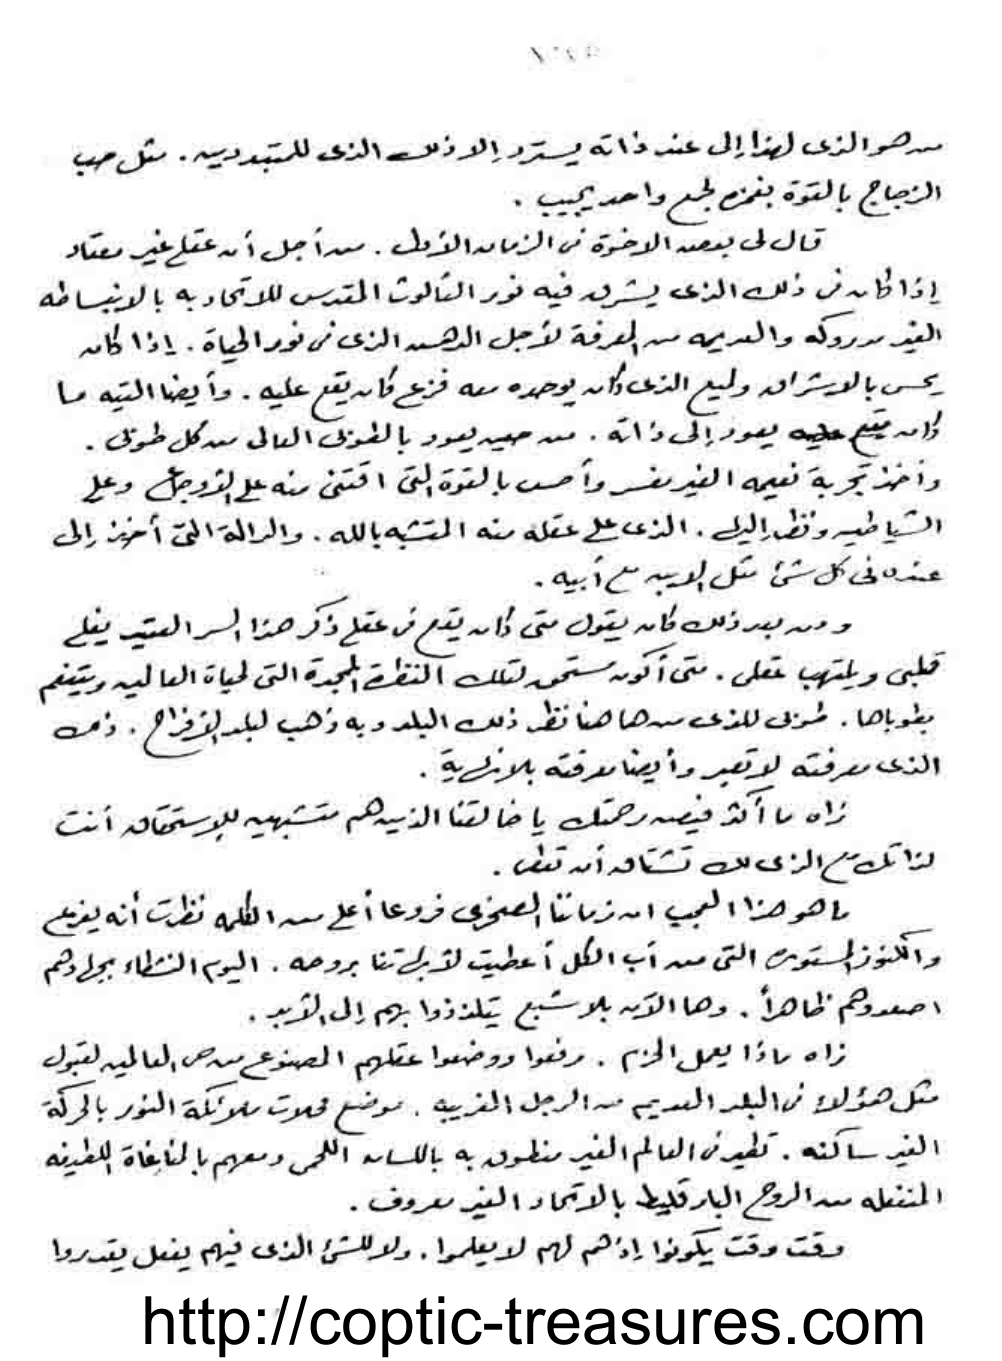 من هو الذى لهذا إلى عند ذاته يسترد إلا ذلك الذى للمتبددين. مثل حب
الزجاج بالقوة بغمزه لجمع واحد يجيب.
قال لى بعض الاخوة فى الزمان الأول. من أجل أن عقلى غير معتاد
إذا كان فى ذلك الذى يشرق فيه نور الثالوث المقدس للاتحاد به بالانبساطه
الغير مدروكه والعديمه من المعرفة لأجل الدهش الذى فى نور الحياة. إذا كان
يحس بالاشراق ولميع الذى كان يوحده معه فزع كان يقع عليه. وأيضا التيه ما
كان يقع عليه يعود إلى ذاته. من حين يعود بالطوبى العالى من كل طوبى.
وأخذ تجربة نعيمه الغير مفسر وأحس بالقوة التى اقتنى منه على الأوجاع وعلى
الشياطين ونظر إليك. الذى على عقله منه المتشبه بالله. والدالة التى أخذ إلى
عنده فى كل شئ مثل الابن مع أبيه.
ومن بعد ذلك كان يقول متى كان يقع فى عقلى ذكر هذا السر العتيد يغلى
قلبى ويلتهب عقلى. متى أكون مستحق لتلك النظرة الممجدة التى لحياة العالمين ويتنعم
بطوباها. طوبى للذى من هاهنا نظر ذلك البلد وبه ذهب لبلد الأفراح. ذلك
الذى معرفته لا تعبر وأيضا معرفته بلا نهاية.
زاه ما أكثر فيض رحمتك يا خالقنا الذين هم متشبهين للاستحقاق أنت
لذاتك مع الذى لك تشتاق أن تعطى.
ما هو هذا العجب ان زماننا الصخرى فروعا أعلى من الكلمه نظرت أنه يفرع
والكنوز المستوره التى من أب الكل أعطيت لأبهاتنا بروحه. اليوم النشطاء بجهادهم
اصعدوهم ظاهراً. وها الآن بلا شبع يتلذذوا بهم إلى الأبد.
زاه ماذا يعمل الحزم. رفعوا ووضعوا عقلهم المصنوع من العالمين لقبول
مثل هؤلاء فى البلد العديم من الرجل الغريبه. موضع محلات ملائكة النور بالحركة
الغير ساكنه. تطير فى العالم الغير منطوق به باللسان اللحمى ومعهم بالمناغاة اللطيفه
المنفعله من الروح البارقليط بالاتحاد الغير معروف.
وقت وقت يكونوا إذ هم لهم لا يعلموا. ولا للشئ الذى فيهم يفعل يقدروا
http://coptic-treasures.com